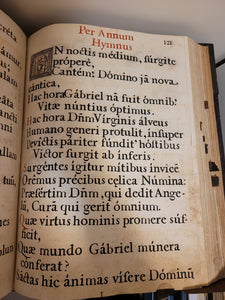 Per Annum
123
Hymnus
IN noctis médium, súrgite
próperè,
Cantém: Dómino jã nova
cántica,
Hac hora Gábriel nã fuit ómnib'
Vitæ núntius óptimus.
Hac hora Dñm Virginis álveus
Humano generi protulit, insuper
Devíctis páriter fundit' hóstibus
Victor surgit ab inferis.
Surgéntes ígitur mítibus invicé
Orémus précibus cælica Númina:
Præsértim Dñm, qui dedit Ange-
lũ, Curã qui gerit ómnium.
Quæ virtus hominis promere súf-
ficit,
Quæ mundo Gábriel múnera
conferat?
Sãctas hic ánimas visere Dóminũ